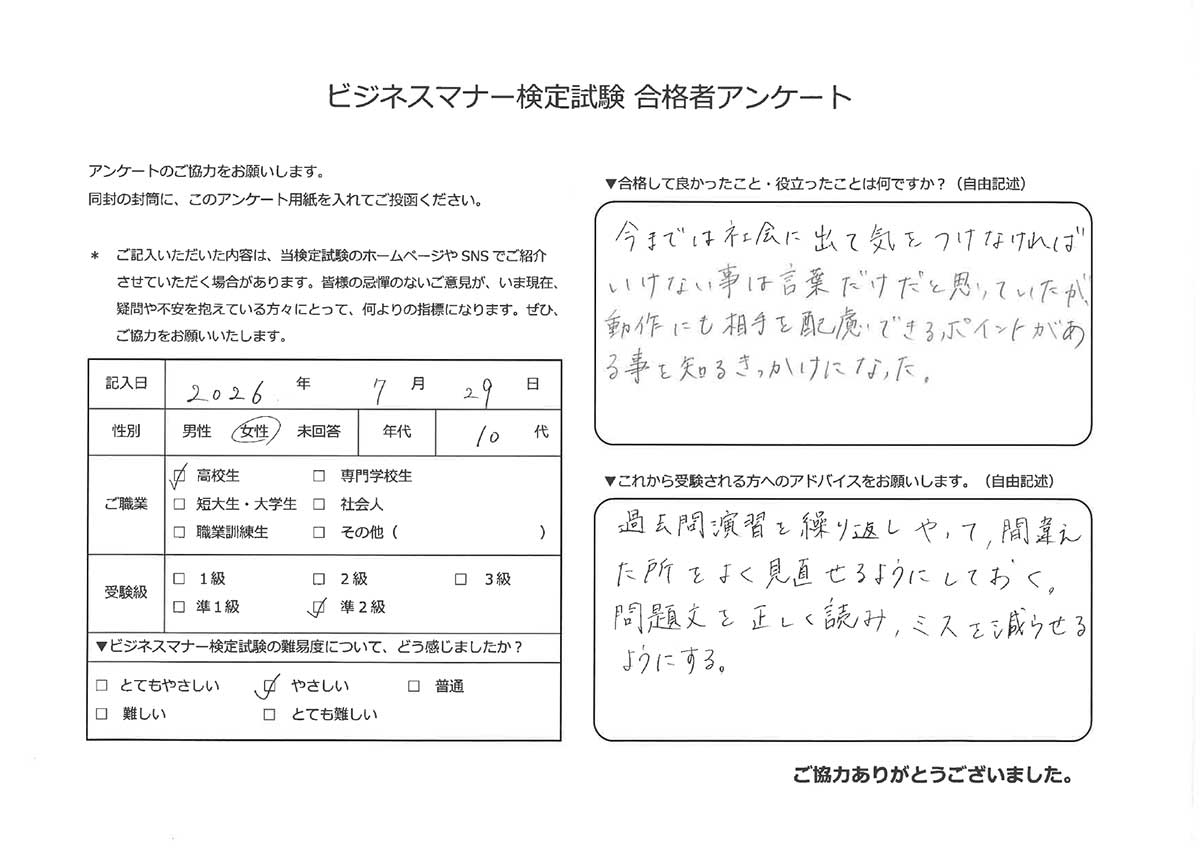 ビジネスマナー検定試験 合格者アンケート
アンケートのご協力をお願いします。
同封の封筒に、このアンケート用紙を入れてご投函ください。
* ご記入いただいた内容は、当検定試験のホームページや SNS でご紹介
させていただく場合があります。皆様の忌憚のないご意見が、いま現在、
疑問や不安を抱えている方々にとって、何よりの指標になります。ぜひ、
ご協力をお願いいたします。
記入日 2026 年 7 月 29 日
性別 男性 女性 未回答 年代 10 代
ご職業
☑ 高校生 □ 専門学校生
□ 短大生・大学生 □ 社会人
□ 職業訓練生 □ その他 ( )
受験級
□ 1級 □ 2級 □ 3級
□ 準1級 ☑ 準2級
▼ビジネスマナー検定試験の難易度について、どう感じましたか?
□ とてもやさしい ☑ やさしい □ 普通
□ 難しい □ とても難しい
▼合格して良かったこと・役立ったことは何ですか?(自由記述)
今までは社会に出て気をつけなければ
いけない事は言葉だけだと思っていたが、
動作にも相手を配慮できるポイントがあ
る事を知るきっかけになった。
▼これから受験される方へのアドバイスをお願いします。(自由記述)
過去問演習を繰り返しやって,間違え
た所をよく見直せるようにしておく。
問題文を正しく読み,ミスを減らせる
ようにする。
ご協力ありがとうございました。